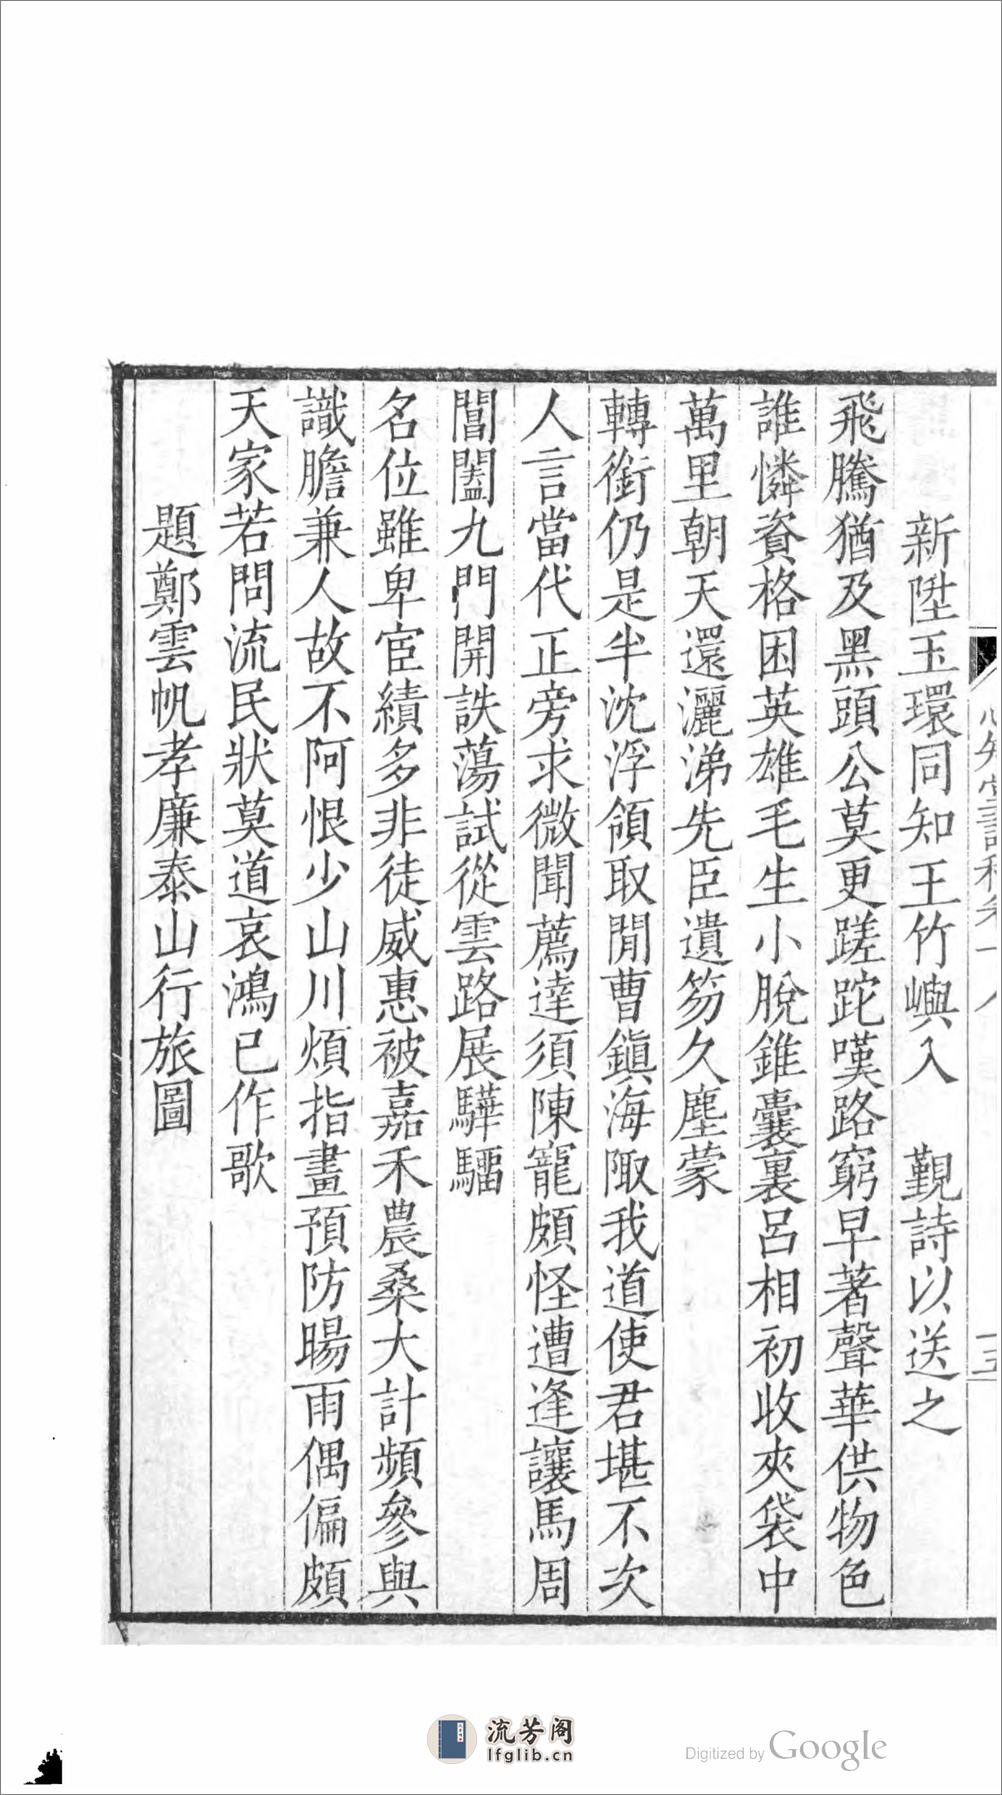 新陞玉環同知王竹嶼入　覲詩以送之
飛騰猶及黑頭公莫更蹉跎嘆路窮早著聲華供物色
誰憐資格困英雄毛生小脫錐囊裏呂相初收夾袋中
萬里朝天還灑涕先臣遺笏久塵蒙
轉銜仍是半沈浮領取閒曹鎭海陬我道使君堪不次
人言當代正旁求微聞薦達須陳寵頗怪遭逢讓馬周
閶闔九門開詄蕩試從雲路展驊騮
名位雖卑宦績多非徒威惠被嘉禾農桑大計頻參與
識膽兼人故不阿恨少山川煩指畫預防暘雨偶偏頗
天家若問流民狀莫道哀鴻已作歌
題鄭雲帆孝廉泰山行旅圖
流芳阁
lfglib.cn
Digitized by Google